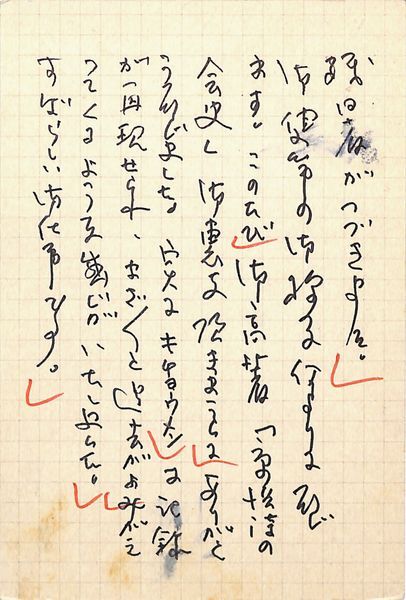 残暑がつづきます。
御健筆の御様子何よりに存じ
ます。このたび御高著「
会史」御恵送頂きましてありがと
うございました。実にキチョウメンな記録
が再現せられ、まざ〱と過去がよみがえ
ってくるような感じがいたしました。
すばらしい御仕事です。